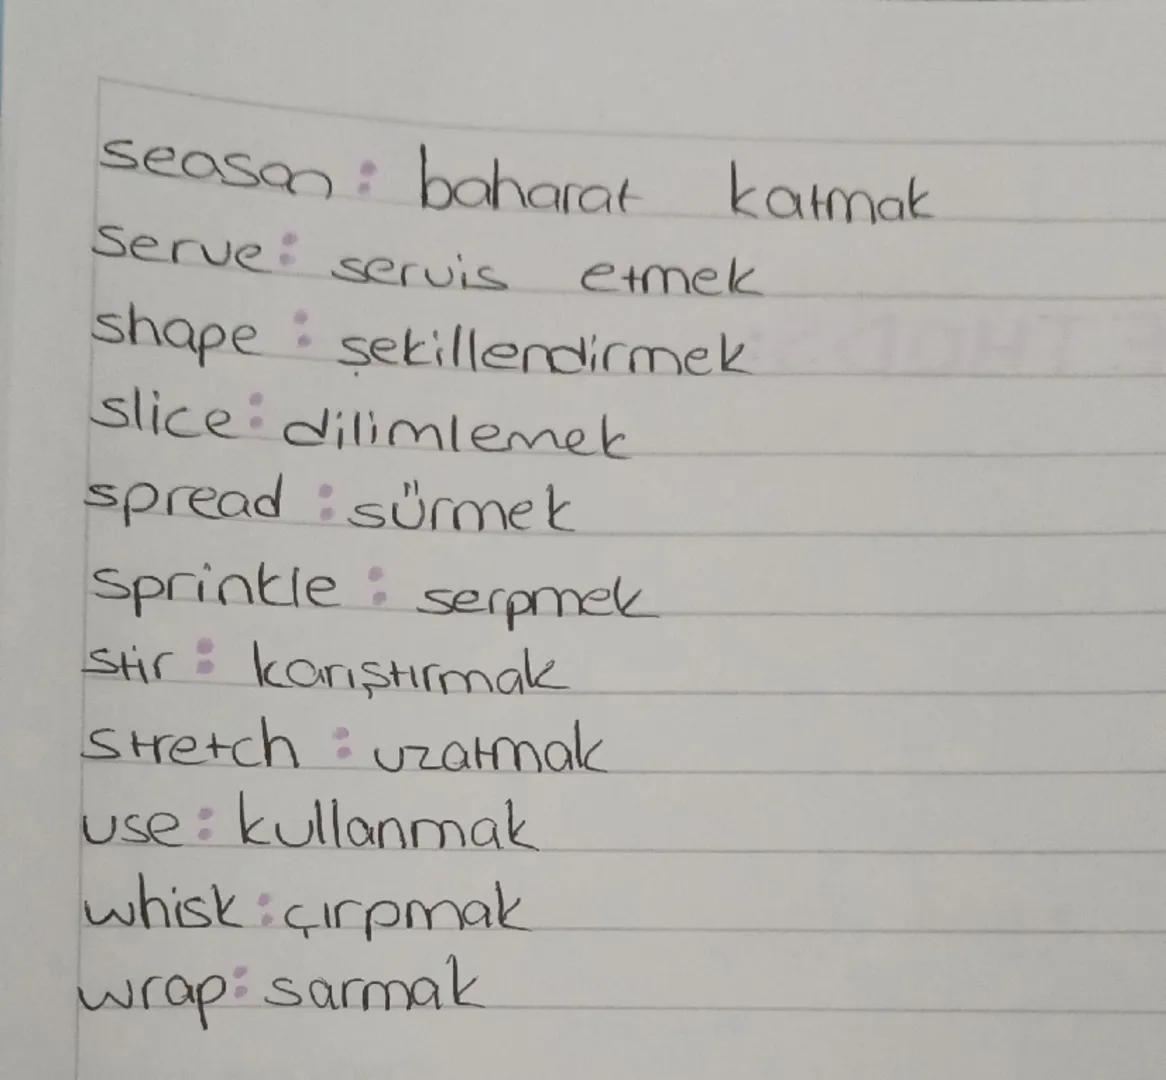 season: baharat katmak
serve: servis etmek
shape: şekillendirmek
slice: dilimlemek
spread: sürmek
sprinkle: serpmek
stir: karıştırmak
stretch: uzatmak
use: kullanmak
whisk: çırpmak
wrap: sarmak